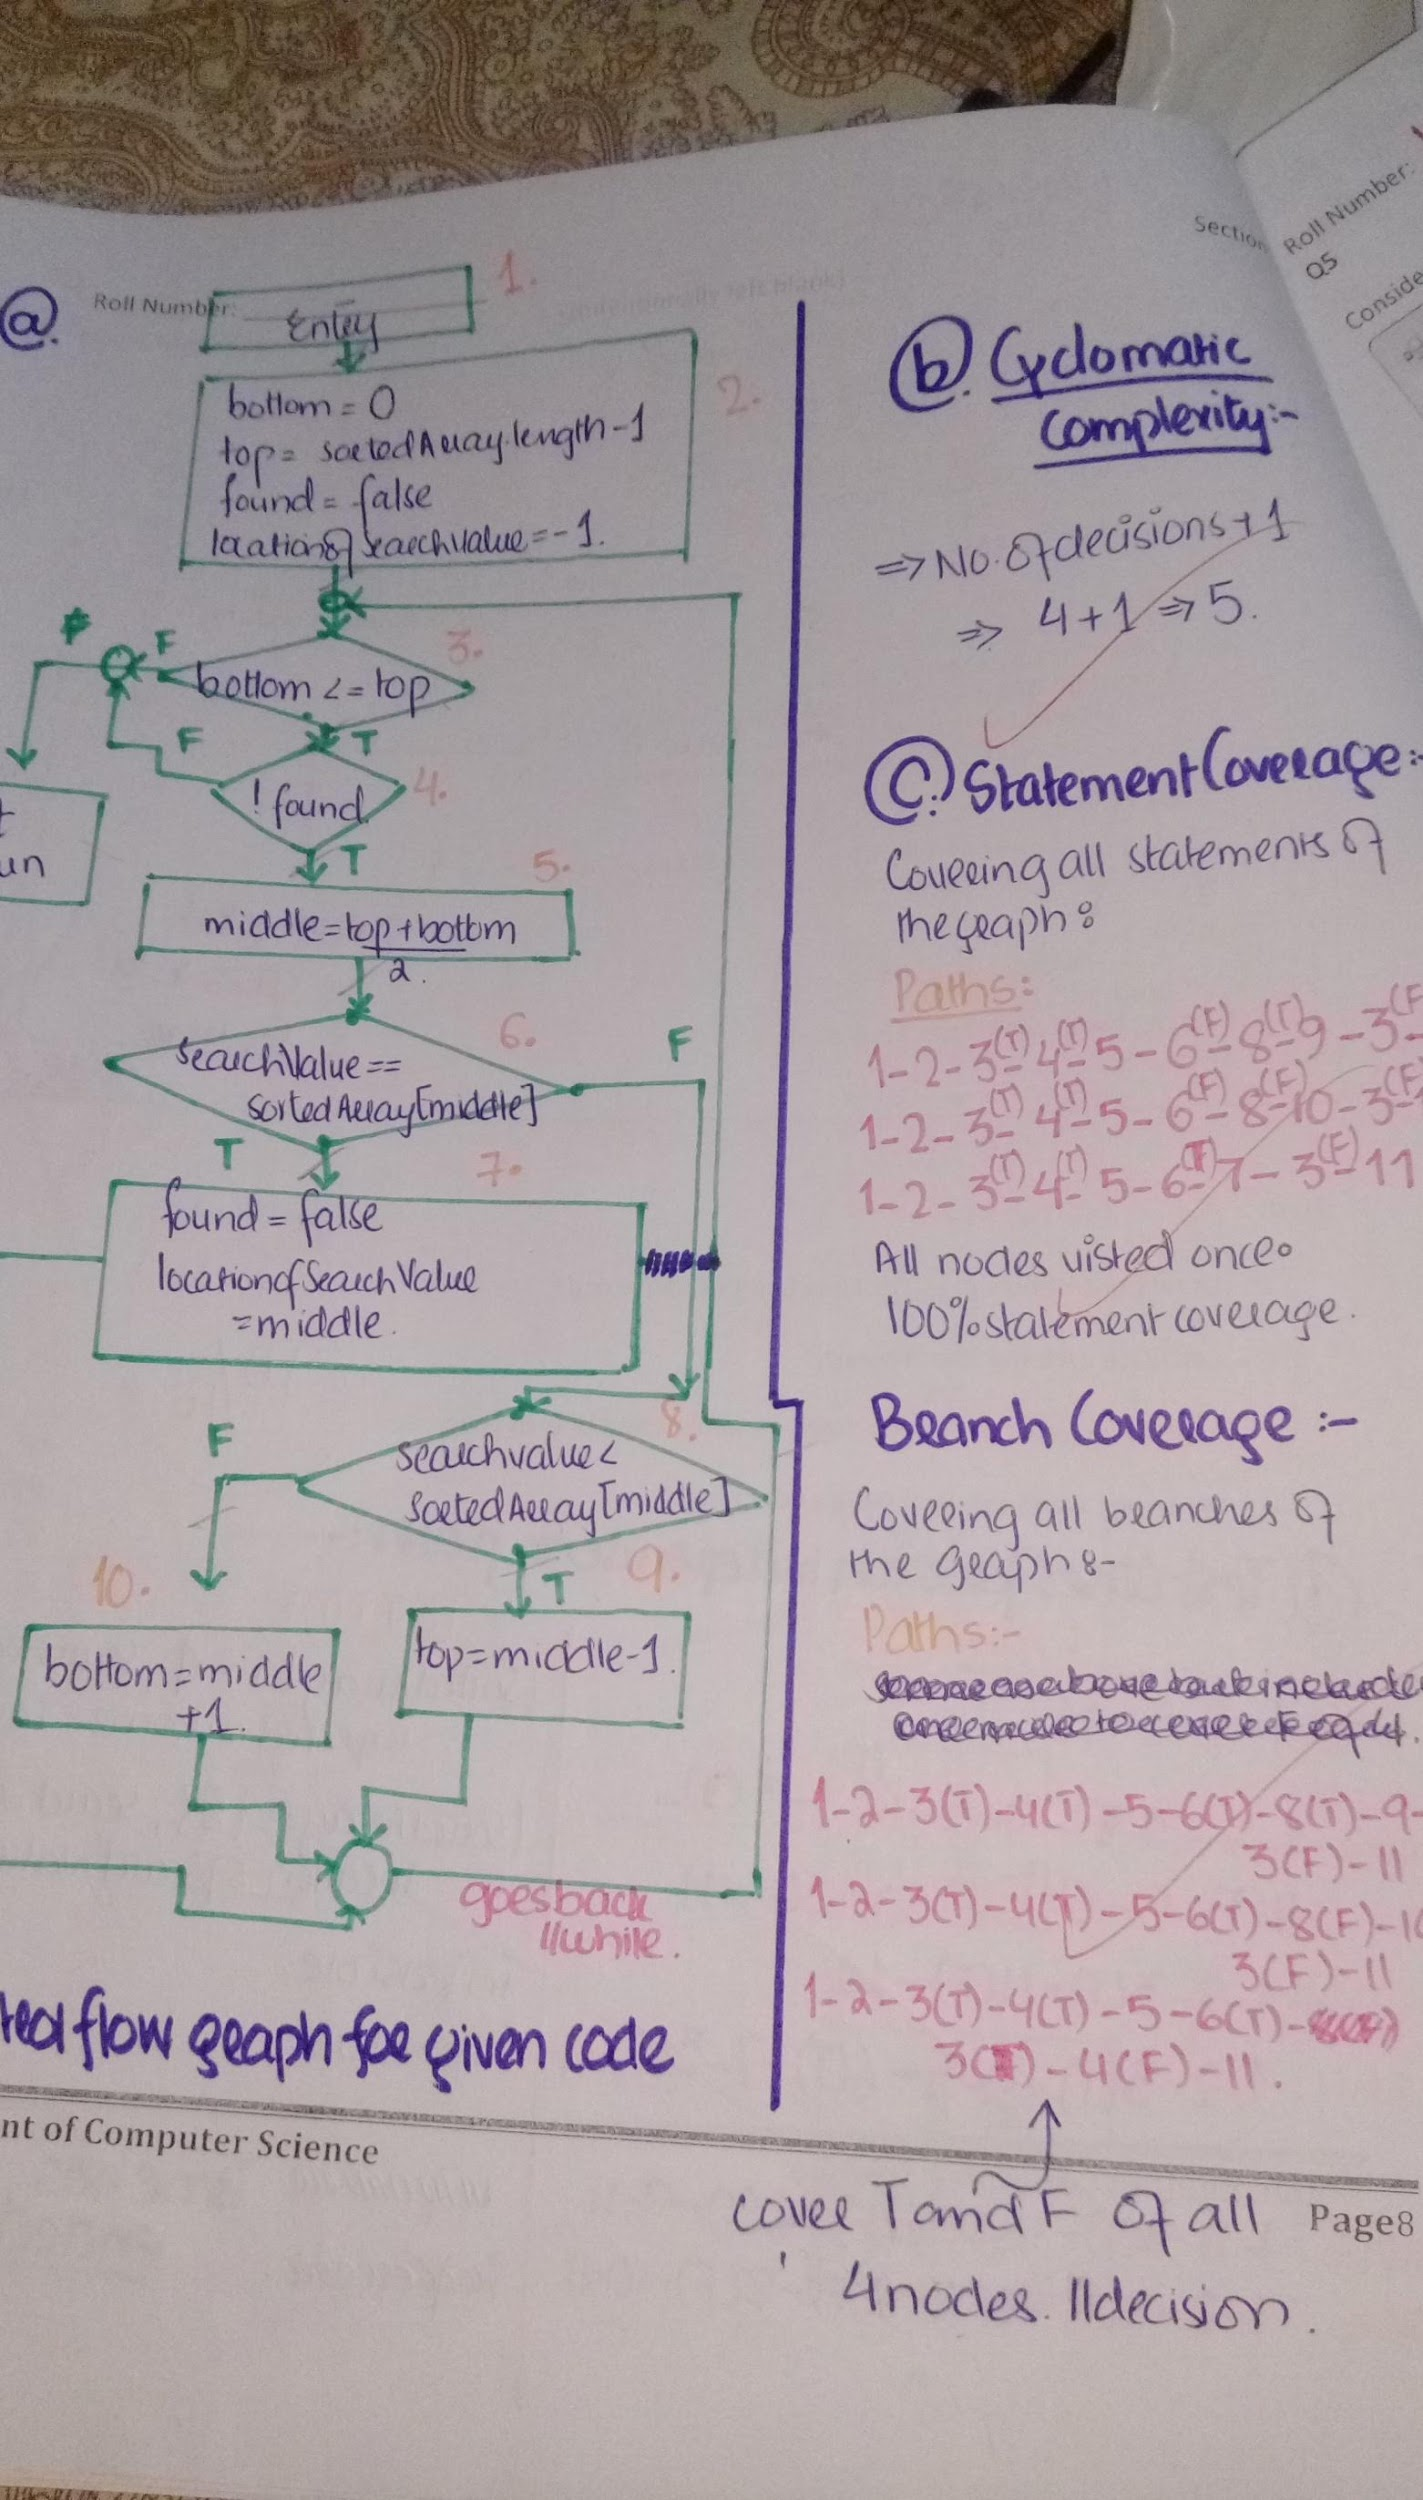 Section
Roll Number:
Q5
Conside
a.
Roll Number:
1.
Entry
2.
bottom = 0
top = sortedArray.length-1
found = false
locationofsearchvalue=-1.
F
F
3.
bottom <= top
F
T
! found
4.
un
T
5.
middle=top+bottom
2.
6.
F
searchValue==
sortedArray[middle]
T
7.
found = false
locationofSearchValue
=middle.
F
8.
searchvalue<
sortedArray[middle]
10.
T
9.
bottom=middle
+1.
top=middle-1.
goesback
//while.
flow graph for given code
nt of Computer Science
b. Cyclomatic
complexity:-
=> No. of decisions+1
=> 4+1 => 5.
C. Statement Coverage:-
Covering all statements of
the graph:
Paths:
1-2-3(T)-4(T)-5-6(F)-8(T)-9-3(F
1-2-3(T)-4(T)-5-6(F)-8(F)-10-3(F
1-2-3(T)-4(T)-5-6(T)-7-3(F)-11
All nodes visted once.
100% statement coverage.
Branch Coverage:-
Covering all branches of
the graph:-
Paths:-
1-2-3(T)-4(T)-5-6(T)-8(T)-9-
3(F)-11
1-2-3(T)-4(T)-5-6(T)-8(F)-10
3(F)-11
1-2-3(T)-4(T)-5-6(T)-
3(T)-4(F)-11.
cover T and F of all
4 nodes. //decision.
Page8